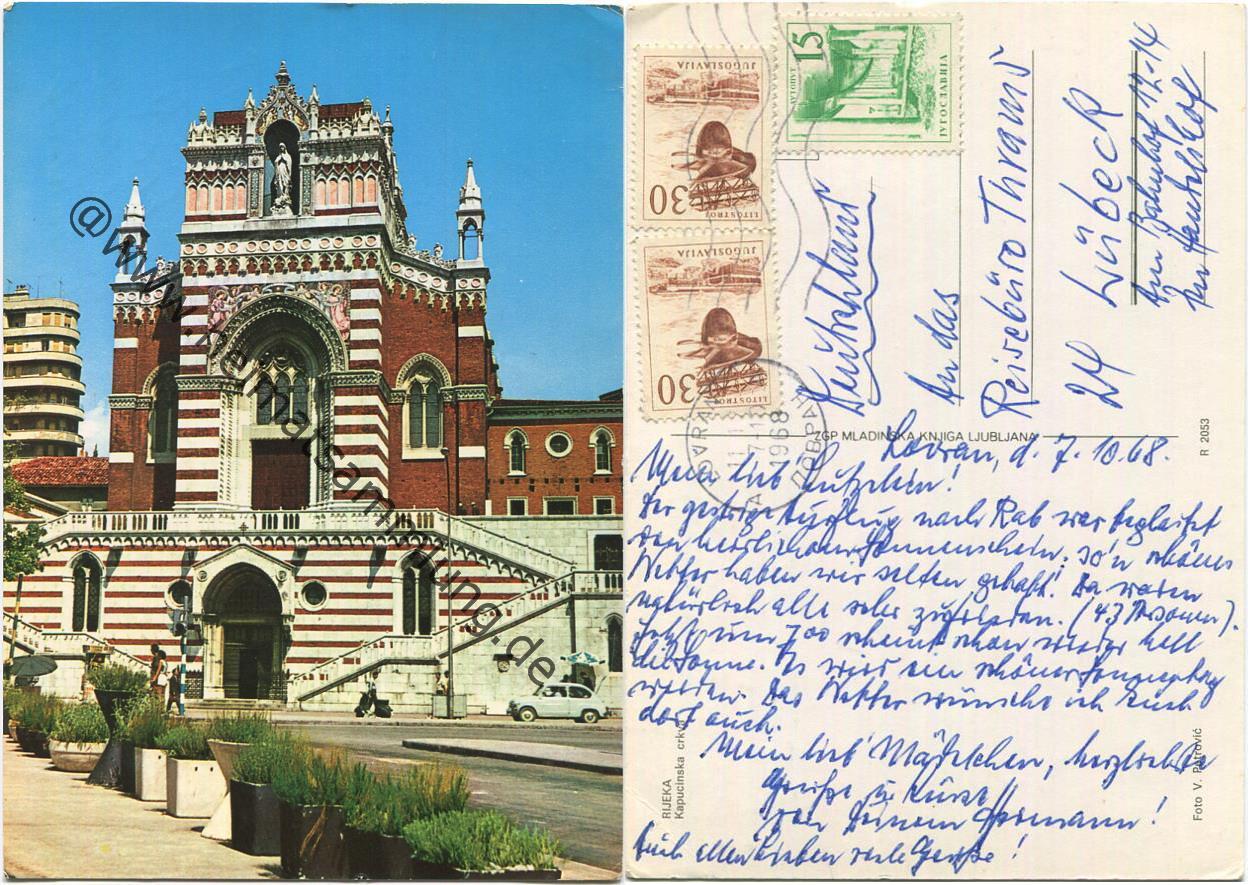 @www.heimatsammlung.de
JUGOSLAVIJA
30
LITOSTROJ
JUGOSLAVIJA
30
LITOSTROJ
15
АУТОПУТ
ЈУГОСЛАВИЈА
LOVRAN
1968
ЛОВРАН
Deutschland
An das
Reisebüro Thrams
24 Lübeck
Am Bahnhof 12-14
Im Handelshof
ZGP MLADINSKA KNJIGA LJUBLJANA
R 2053
RIJEKA
Kapucinska crkva
Foto V. Petrović
Lovran, d. 7.10.68.
Mein lieb'
Der gestrige Ausflug nach Rab war begleitet
von herrlichem Sonnenschein. So'n schönes
Wetter haben wir selten gehabt! Da waren
natürlich alle sehr zufrieden. (43 Personen).
Jetzt um 7.00 scheint schon wieder hell
die Sonne. Es wird ein schöner Sonnentag
werden. Das Wetter wünsche ich Euch
dort auch.
Mein lieb' Mädelchen, herzlichste
Grüße u. Küsse
von Deinem Hermann!
Euch allen Lieben viele Grüße!